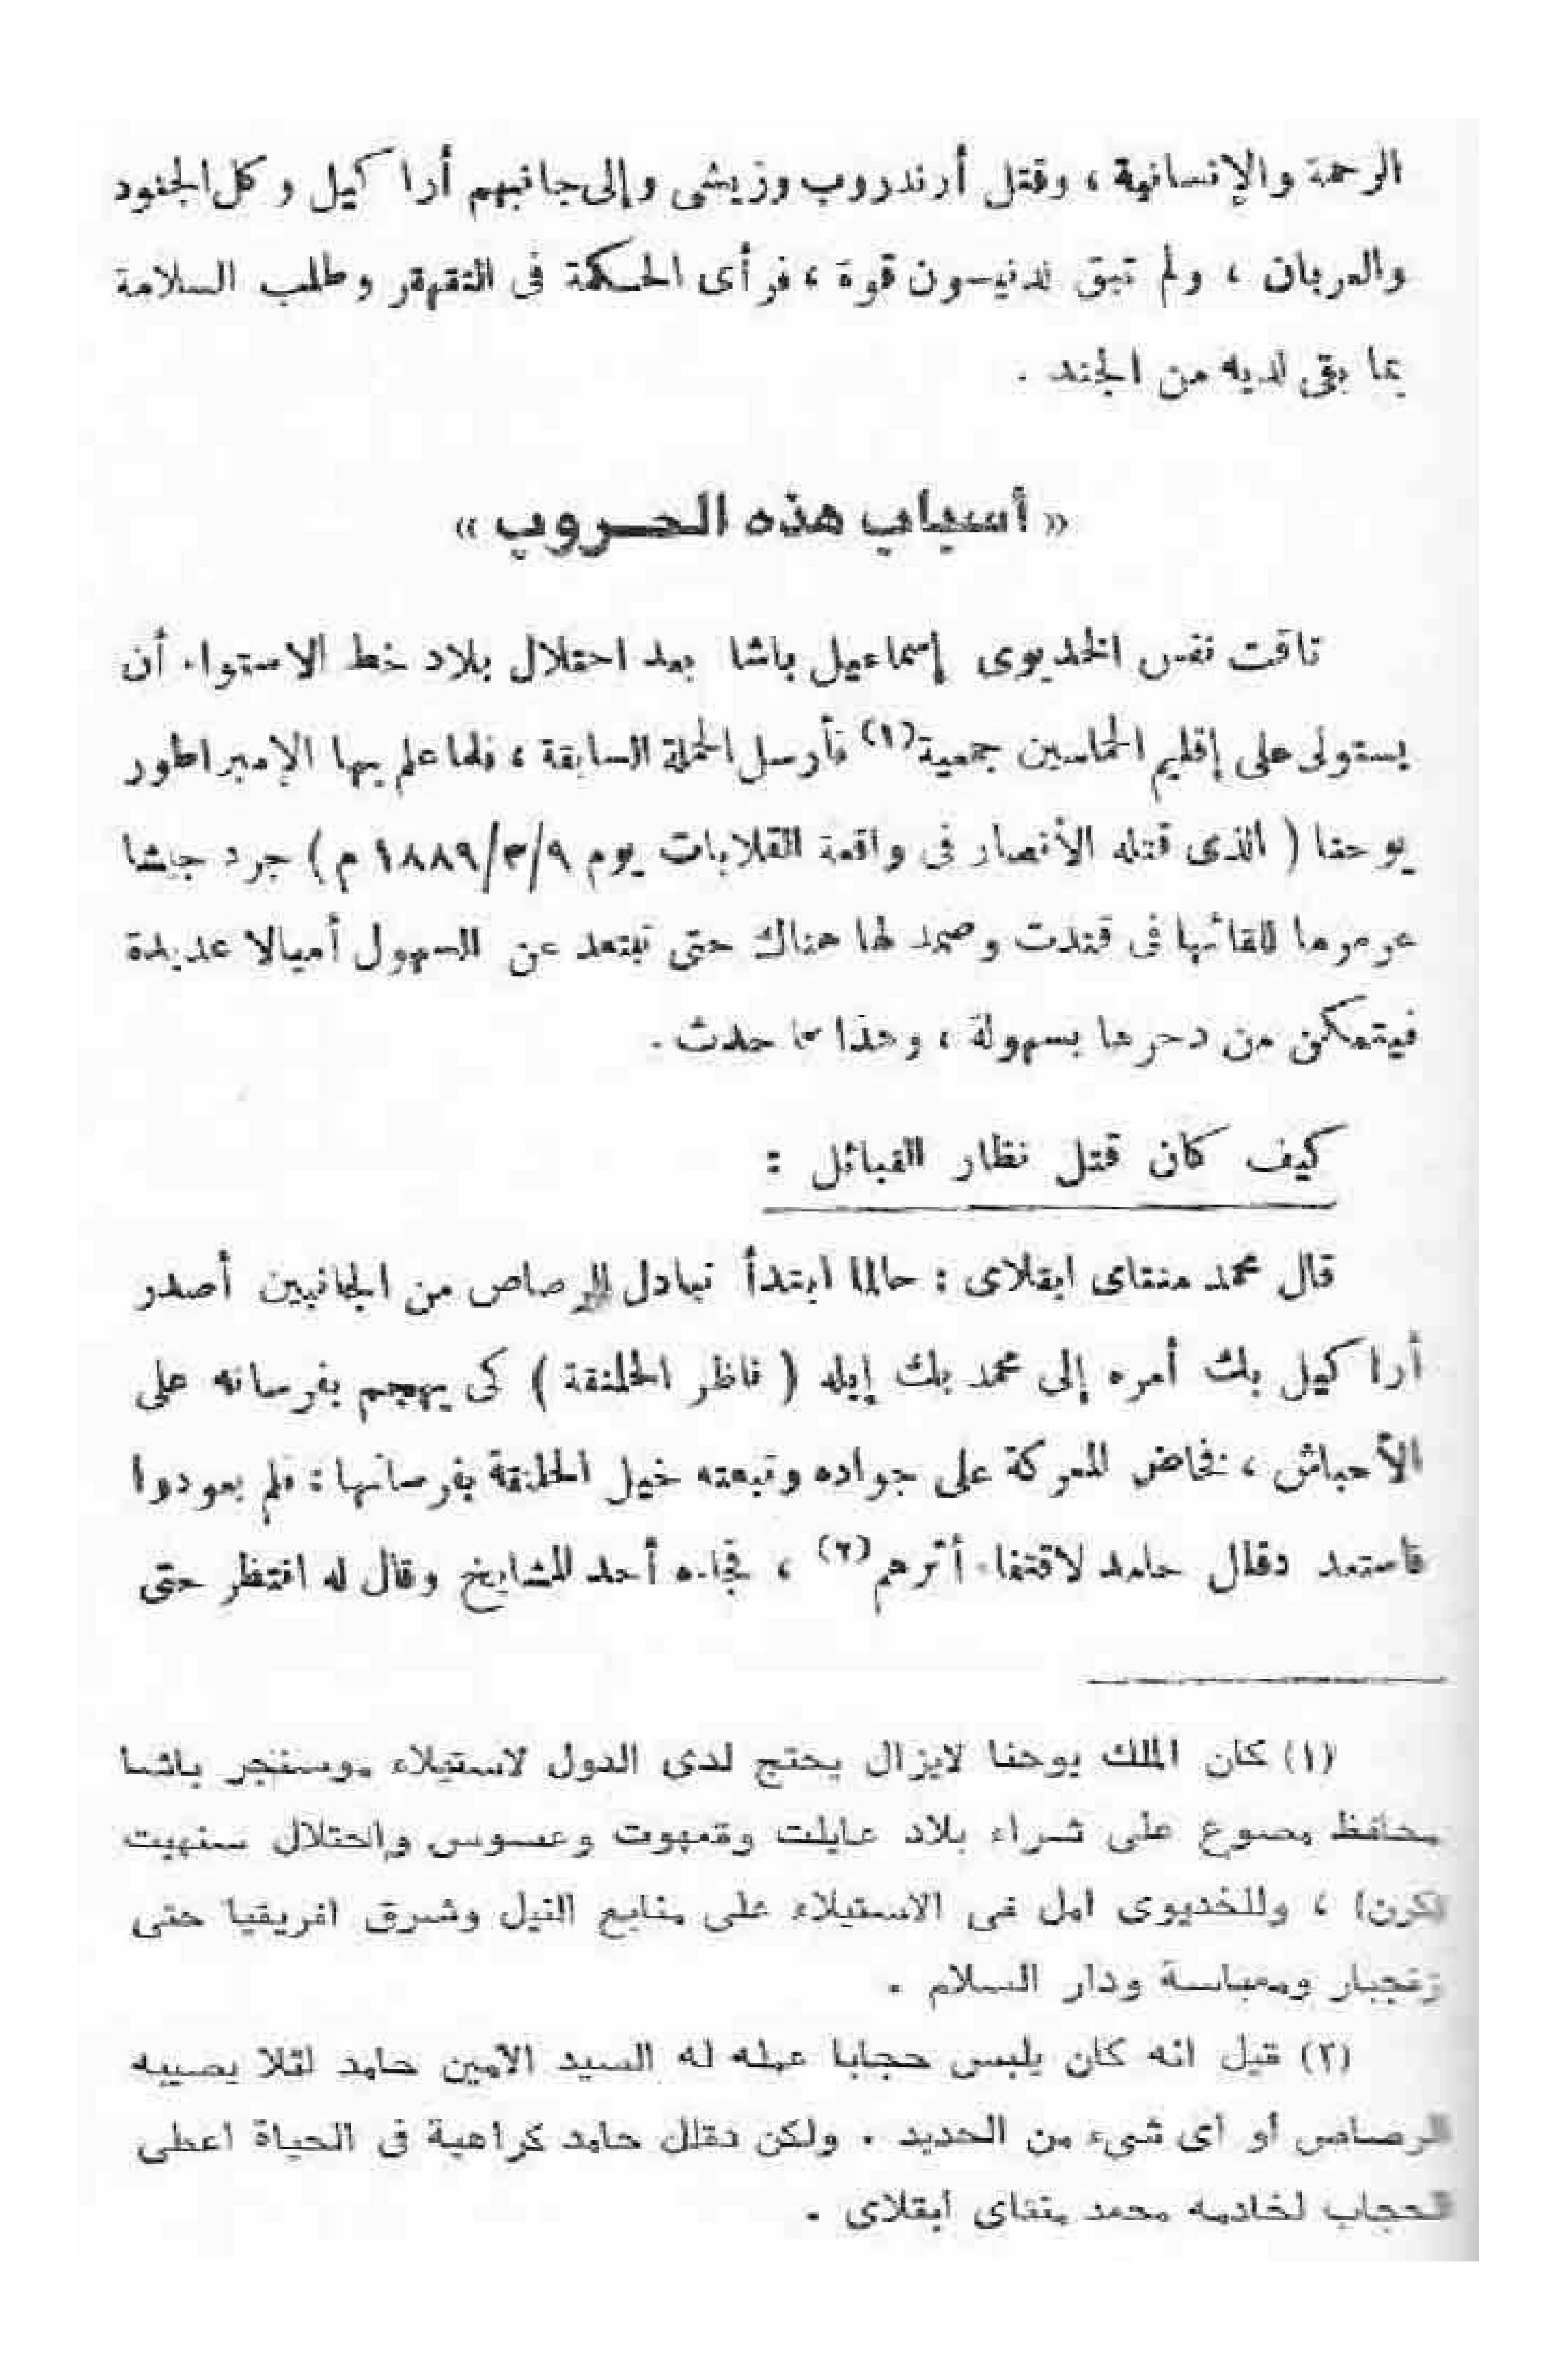 الرحمة والإنسانية ، وقتل أرندروب وزيشى وإلى جانبهم أراكيل وكل الجنود
والعربان ، ولم تبق لدنيسون قوة ، فرأى الحكمة فى التقهقر وطلب السلامة
بما بقى لديه من الجند .
« أسباب هذه الحروب »
تاقت نفس الخديوى إسماعيل باشا بعد احتلال بلاد خط الاستواء أن
يستولى على إقليم الحماسين جمعية (١) فأرسل الحملة السابقة ، فلما علم بها الإمبراطور
يوحنا ( الذى قتله الأنصار فى واقعة القلابات يوم ٩/٣/١٨٨٩ م ) جرد جيشا
عرمرما للقائها فى قندت وصمد لها هناك حتى تبتعد عن السهول أميالا عديدة
فيتمكن من دحرها بسهولة ، وهذا ما حدث .
كيف كان قتل نظار القبائل :
قال محمد منتاى ابقلاى : حالما ابتدأ تبادل الرصاص من الجانبين أصدر
أراكيل بك أمره إلى محمد بك إيله ( ناظر الحلنقة ) كى يهجم بفرسانه على
الأحباش ، فخاض المعركة على جواده وتبعته خيل الحلنقة بفرسانها : فلم يعودوا
فاستعد دقلل حامد لاقتفاء أثرهم (٢) ، فجاءه أحد المشايخ وقال له انتظر حتى
(١) كان الملك يوحنا لايزال يحتج لدى الدول لاستيلاء موسنجر باشا
محافظ مصوع على شراء بلاد عايلت وقمهوت وعسوس واحتلال سنهيت
(كرن) ، وللخديوى امل فى الاستيلاء على منابع النيل وشرق افريقيا حتى
زنجبار وممباسة ودار السلام .
(٢) قيل انه كان يلبس حجابا عمله له السيد الأمين حامد لئلا يصيبه
الرصاص أو أى شىء من الحديد . ولكن دقلل حامد كراهية فى الحياة اعطى
الحجاب لخادمه محمد منتاى أبقلاى .